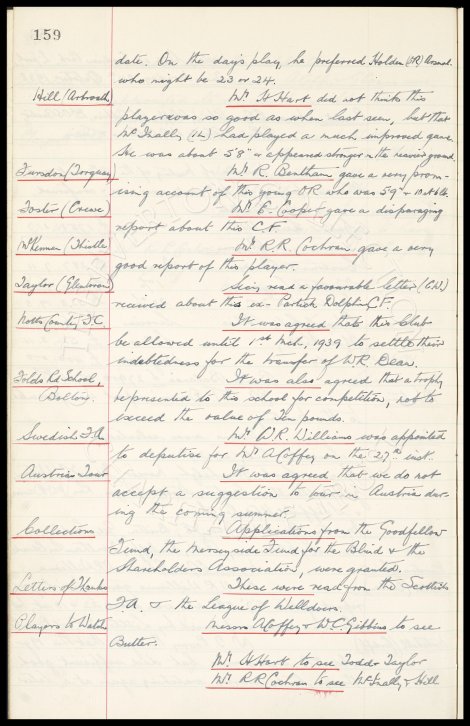 159
date. On the days play, he preferred Holden (OR) Arsenal.
who might be 23 or 24.
Hill (Arbroath)
Mr. H. Hart did not think this
player was so good as when last seen, but that
McInally (I.L.) had played a much improved game.
He was about 5'8" & appeared stronger in the heavier ground.
Fursdon (Torquay)
Mr. R. Bentham gave a very prom-
ising account of this young OR who was 5'9" &
Foster (Crewe)
Mr. E. Cooper gave a disparaging
report about this C.F.
McKennan (Thistle
Mr. R.R. Cochran gave a very
good report of this player.
Taylor (Glentoran)
Secy. read a favourable letter
received about this ex-Partick Dolphin C.F.
Notts County F.C.
It was agreed that this Club
be allowed until 1st Mch., 1939 to settle their
indebtedness for the transfer of W.R. Dean.
Folds Rd. School,
Bolton.
It was also agreed that a trophy
be presented to this school for competition, not to
exceed the value of ten pounds.
Swedish F.A.
Mr. W.R. Williams was appointed
to deputise for Mr. A. Coffey on the 27th inst.
Austrian Tour
It was agreed that we do not
accept a suggestion to tour in Austria dur-
ing the coming summer.
Collections
Applications from the Goodfellow
Fund, the Merseyside Fund for the Blind & the
Shareholders Association, were granted.
Letters of Thanks
These were read from the Scottish
F.A. & the League of Welldoers.
Players to Watch
Messrs A. Coffey & W.C. Gibbins to see
Butler.
Mr. H. Hart to see Todd & Taylor
Mr. R.R. Cochran to see McInally & Hill